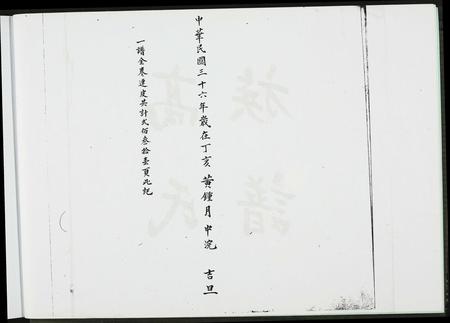 中華民國三十六年歲在丁亥 黃鍾月中浣 吉旦
一譜全卷連皮共計弍佰叁拾壹頁此記